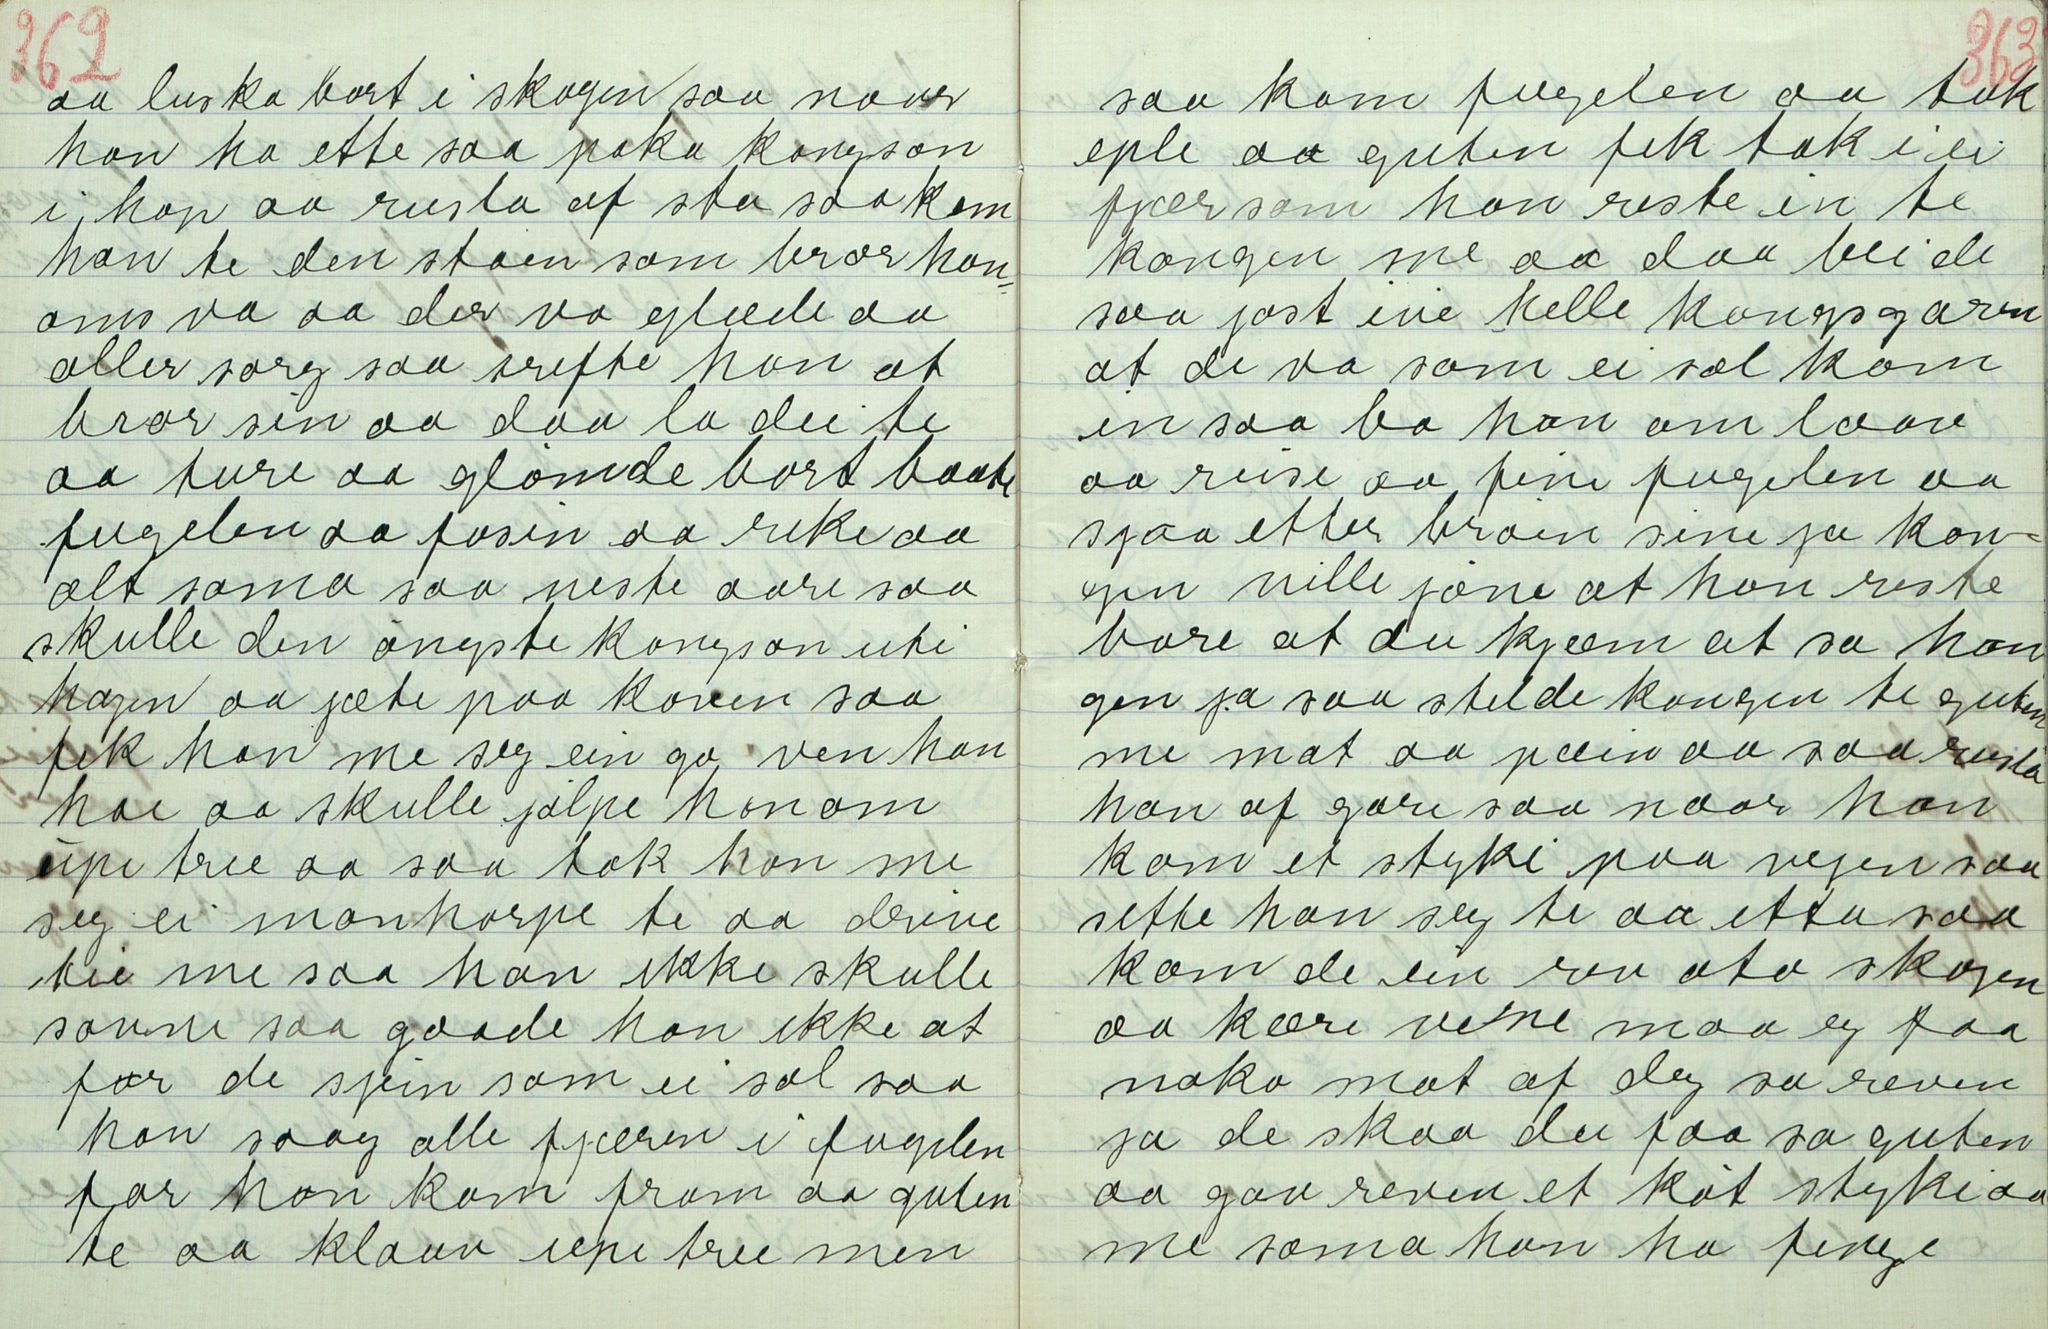 362
aa luska bort i skogen saa naar
han ha ette saa paka kongson
i hop aa rusla af sta saa kom
han te den staen som bror han=
oms va aa der va glæde aa
aller sorg saa trefte han at
bror sin aa daa la dei te
aa ture aa glömde bort baate
fugelen aa fosin aa rike aa
alt sama saa neste aare saa
skulle den öngste kongson uti
hagen aa jæte paa koven saa
fek han me seg ein go ven han
hae aa skulle jölpe honom
upi tree aa saa tok han me
seg ei monharpe te aa drive
tie me saa han ikke skulle
sovne saa gaade han ikke at
før de sjein som ei sol saa
han saag alle fjæren i fugelen
før han kom fram aa guten
te aa klaav upi tree men
363
saa kom fugelen aa tok
eple aa guten fek tak i ei
fjær som han reste in te
kongen me aa daa blei de
saa jost ivi helle kongsgaren
at de va som ei sol kom
in saa ba han om laav
aa reise aa fine fugelen aa
sjaa etter broin sine ja kon=
gen ville jöne at han reste
bare at du kjæm at sa kon
gen ja saa stelde kongen te guten
me mat aa pæin aa saa rusla
han af gare saa naar han
kom et styki paa vejen saa
sette han seg te aa etta saa
kom de ein rev ota skogen
aa kære vene maa eg faa
noko mat af deg sa reven
ja de skaa du faa sa guten
aa gav reven et köt styki aa
me sama han ha fenge